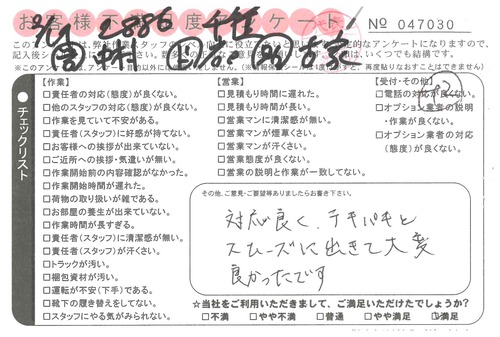 お客様不満度アンケート
2886
№ 047030
【作業】
□責任者の対応(態度)が良くない。
□他のスタッフの対応(態度)が良くない。
□作業を見ていて不安がある。
□責任者(スタッフ)に好感が持てない。
□お客様への挨拶が出来ていない。
□ご近所への挨拶・気遣いが無い。
□作業開始前の内容確認がなかった。
□作業開始時間が遅れた。
□荷物の取り扱いが雑である。
□お部屋の養生が出来ていない。
□作業時間が長すぎる。
□責任者(スタッフ)に清潔感が無い。
□責任者(スタッフ)が汗くさい。
□トラックが汚い。
□梱包資材が汚い。
□運転が不安(下手)である。
□靴下の履き替えをしてない。
□スタッフにやる気がみられない。
【営業】
□見積もり時間に遅れた。
□見積もり時間が長い。
□営業マンに清潔感が無い。
□営業マンが煙草くさい。
□営業マンが汗くさい。
□営業態度が良くない。
□営業の説明と作業が一致してない。
【受付・その他】
□電話の対応が良くない。
□オプション業者の説明
・作業が良くない。
□オプション業者の対応
(態度)が良くない。
チェックリスト
その他、ご意見・ご要望等ありましたらお書き下さい。
対応良く、テキパキと
スムーズに出きて大変
良かったです
☆当社をご利用いただきまして、ご満足いただけたでしょうか?
□不満 □やや不満 □普通 □やや満足 □満足